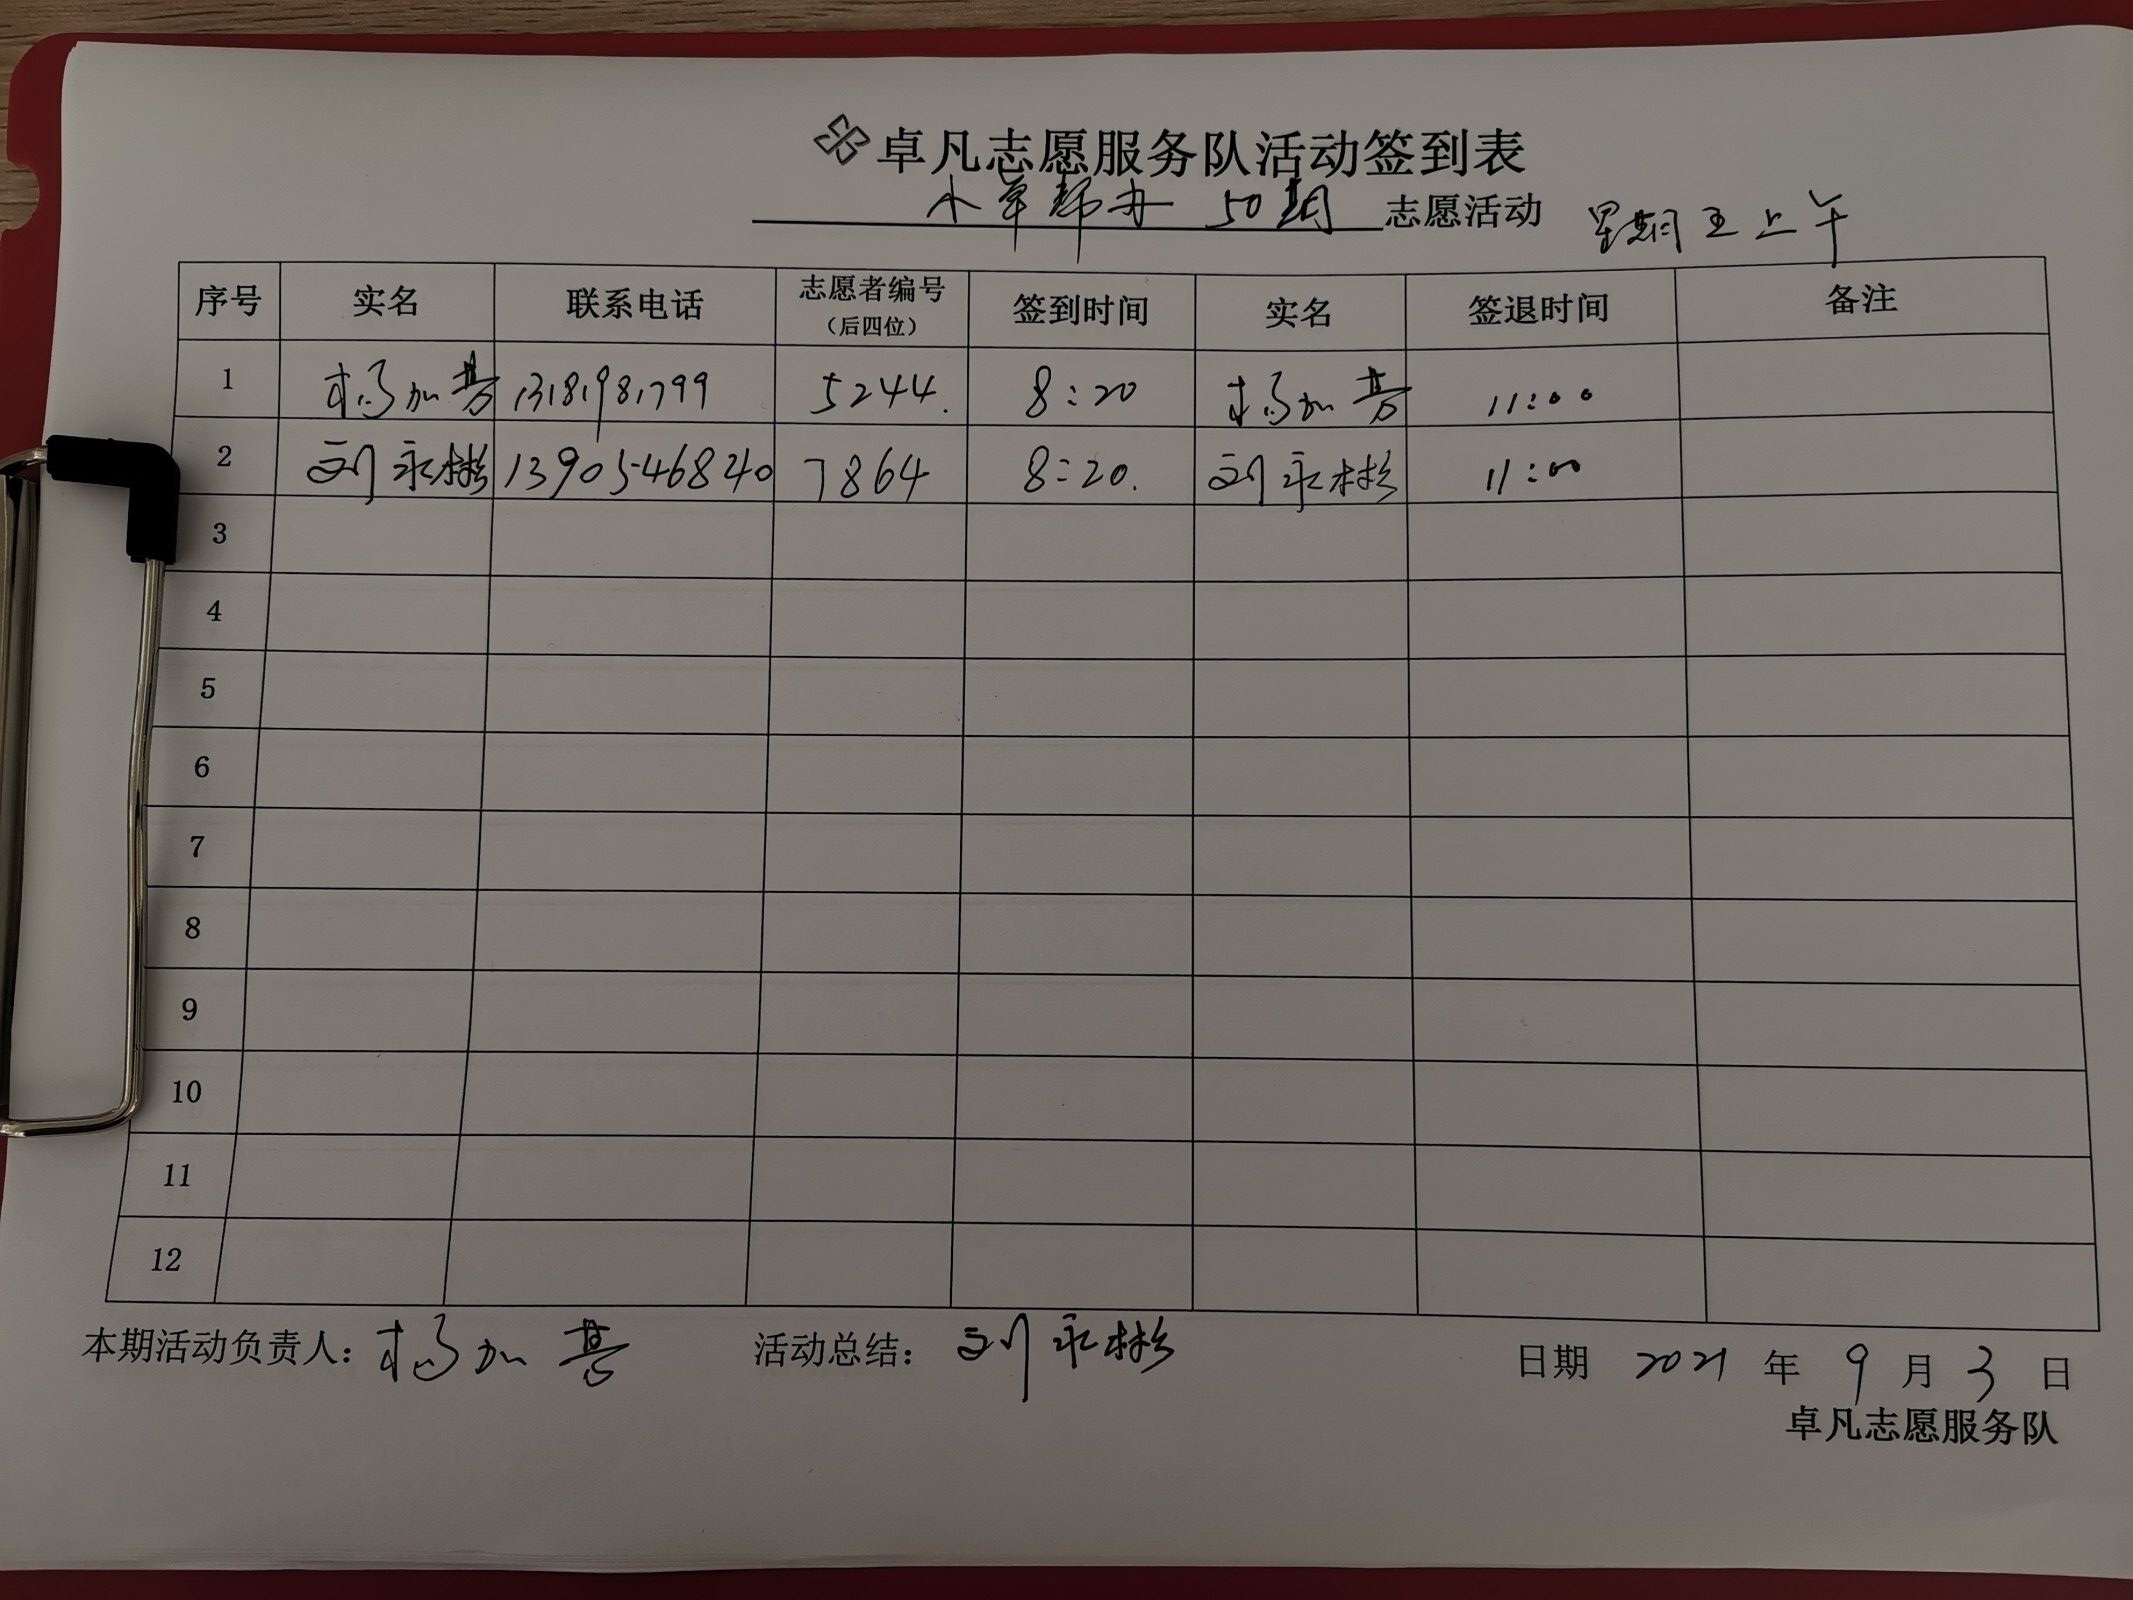 卓凡志愿服务队活动签到表
小草帮办 50期 志愿活动 星期五上午
序号 实名 联系电话 志愿者编号（后四位） 签到时间 实名 签退时间 备注
1 杨加 13181981799 5244. 8:20 杨加 11:00
2 刘永彬 13905468240 7864 8:20. 刘永彬 11:00
3
4
5
6
7
8
9
10
11
12
本期活动负责人：杨加 活动总结：刘永彬 日期 2021 年 9 月 3 日
卓凡志愿服务队